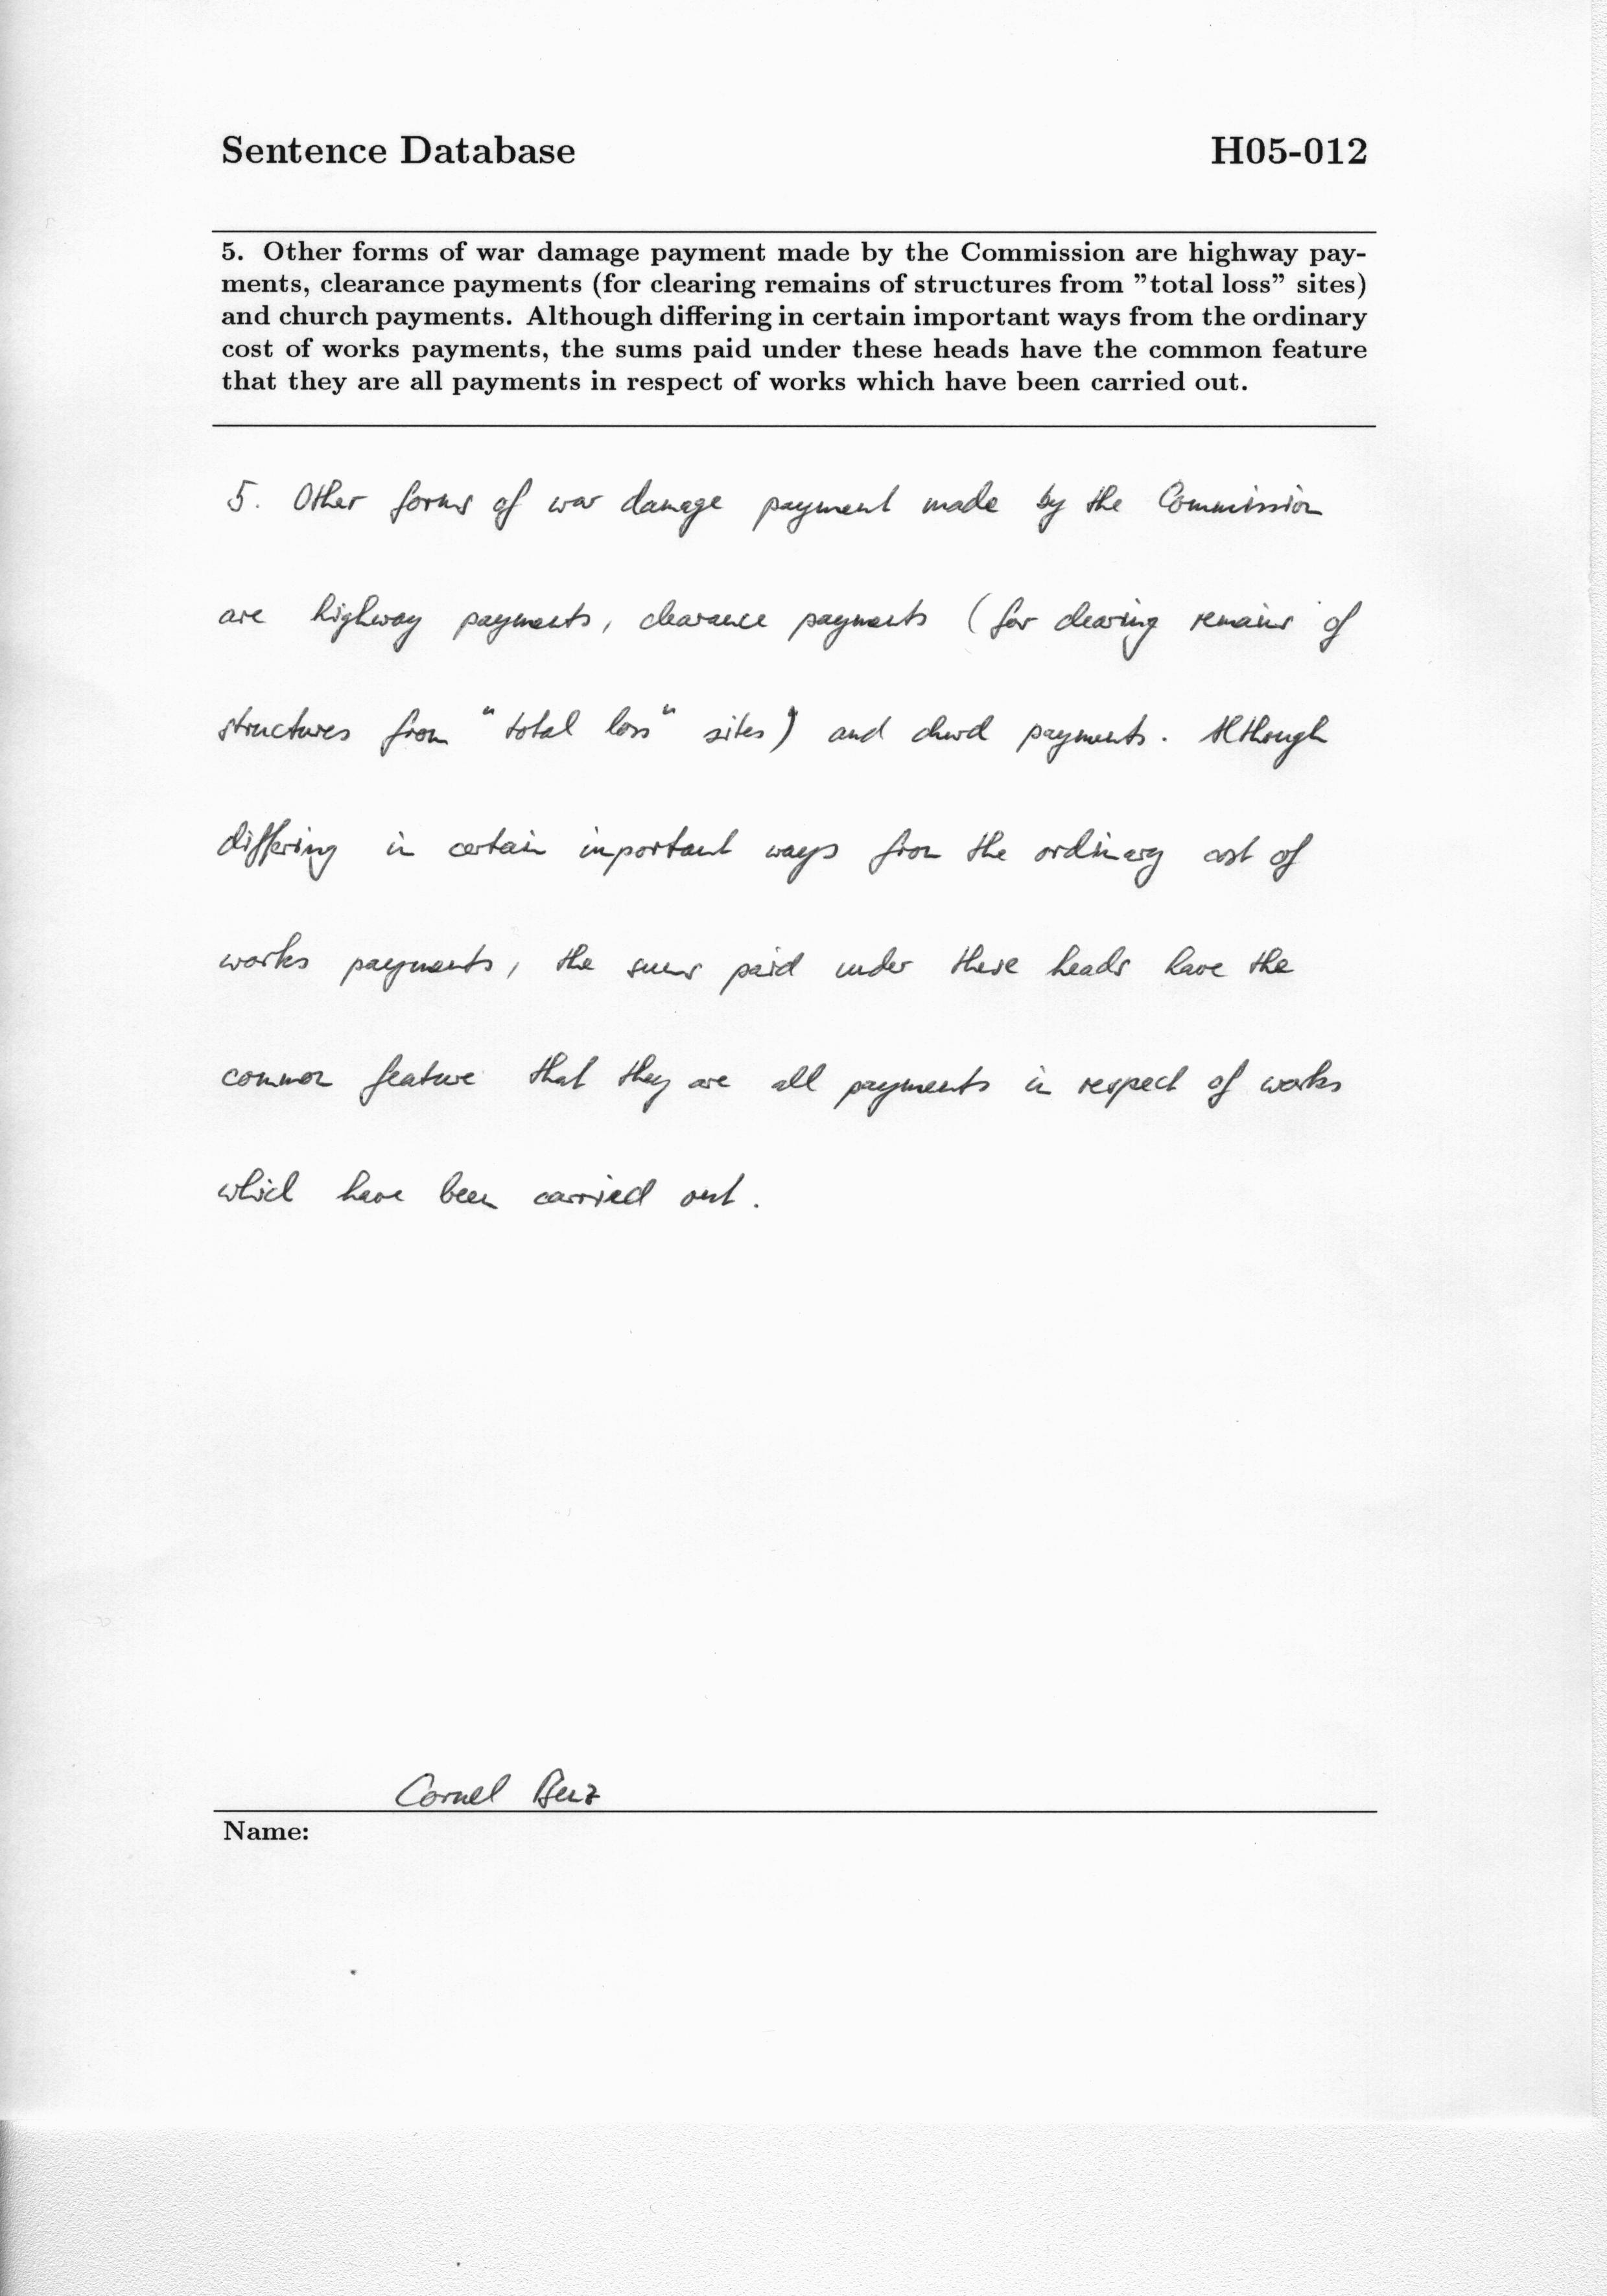 Sentence Database H05-012
5. Other forms of war damage payment made by the Commission are highway pay-
ments, clearance payments (for clearing remains of structures from ”total loss” sites)
and church payments. Although differing in certain important ways from the ordinary
cost of works payments, the sums paid under these heads have the common feature
that they are all payments in respect of works which have been carried out.
5. Other forms of war damage payment made by the Commission
are highway payments, clearance payments (for clearing remains of
structures from "total loss" sites) and church payments. Although
differing in certain important ways from the ordinary cost of
works payments, the sums paid under these heads have the
common feature that they are all payments in respect of works
which have been carried out.
Cornel
Name: